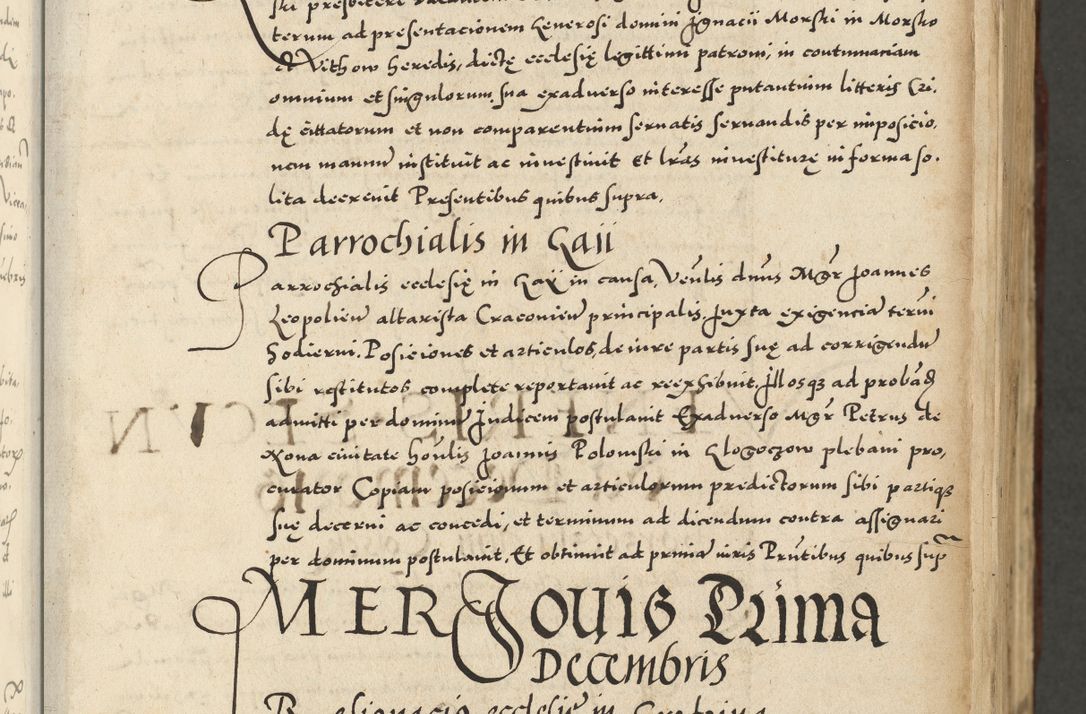 terum ad presentacionem Generosi domini Ignacii Morski in Morsko
et Vithow heredis, dictę ecclesię legittimi patroni, in contumaciam
omnium et singulorum sua exadverso interesse putantium litteris Cri,
dę cittatorum et non comparentium servatis servandis per imposicio,
nem manuū instituit ac investivit et lr̄as investiturę in forma so,
lita decrevit Presentibus quibus supra,
Parrochialis in Gaii
Parrochialis ecclesię in Gaÿ in causa, Ven̄lis dn̄us Mgr̄ Joannes
Leopolieñ altarista Cracovieñ principalis, Juxta exigenciā termī
hodierni, Posiciones et articulos, de iure partis suę ad corrigendū
sibi restitutos complete reportavit ac reexhibuit, Illosqȝ ad probād
admitti per dominū Judicem postulavit Exadverso Mgr̄ Petrus de
Xona civitate hon̄lis Joannis Polomski in Glogoczow plebani pro,
curator Copiam posicionum et articulorum predictorum sibi partiqȝ
suę decerni ac concedi, et terminum ad dicendum contra assignari
per dominum postulavit, Et obtinuit ad primā iuris Prn̄tibus quibus sup̄
MERC Jovis Prima
Decembris
ecclesię in